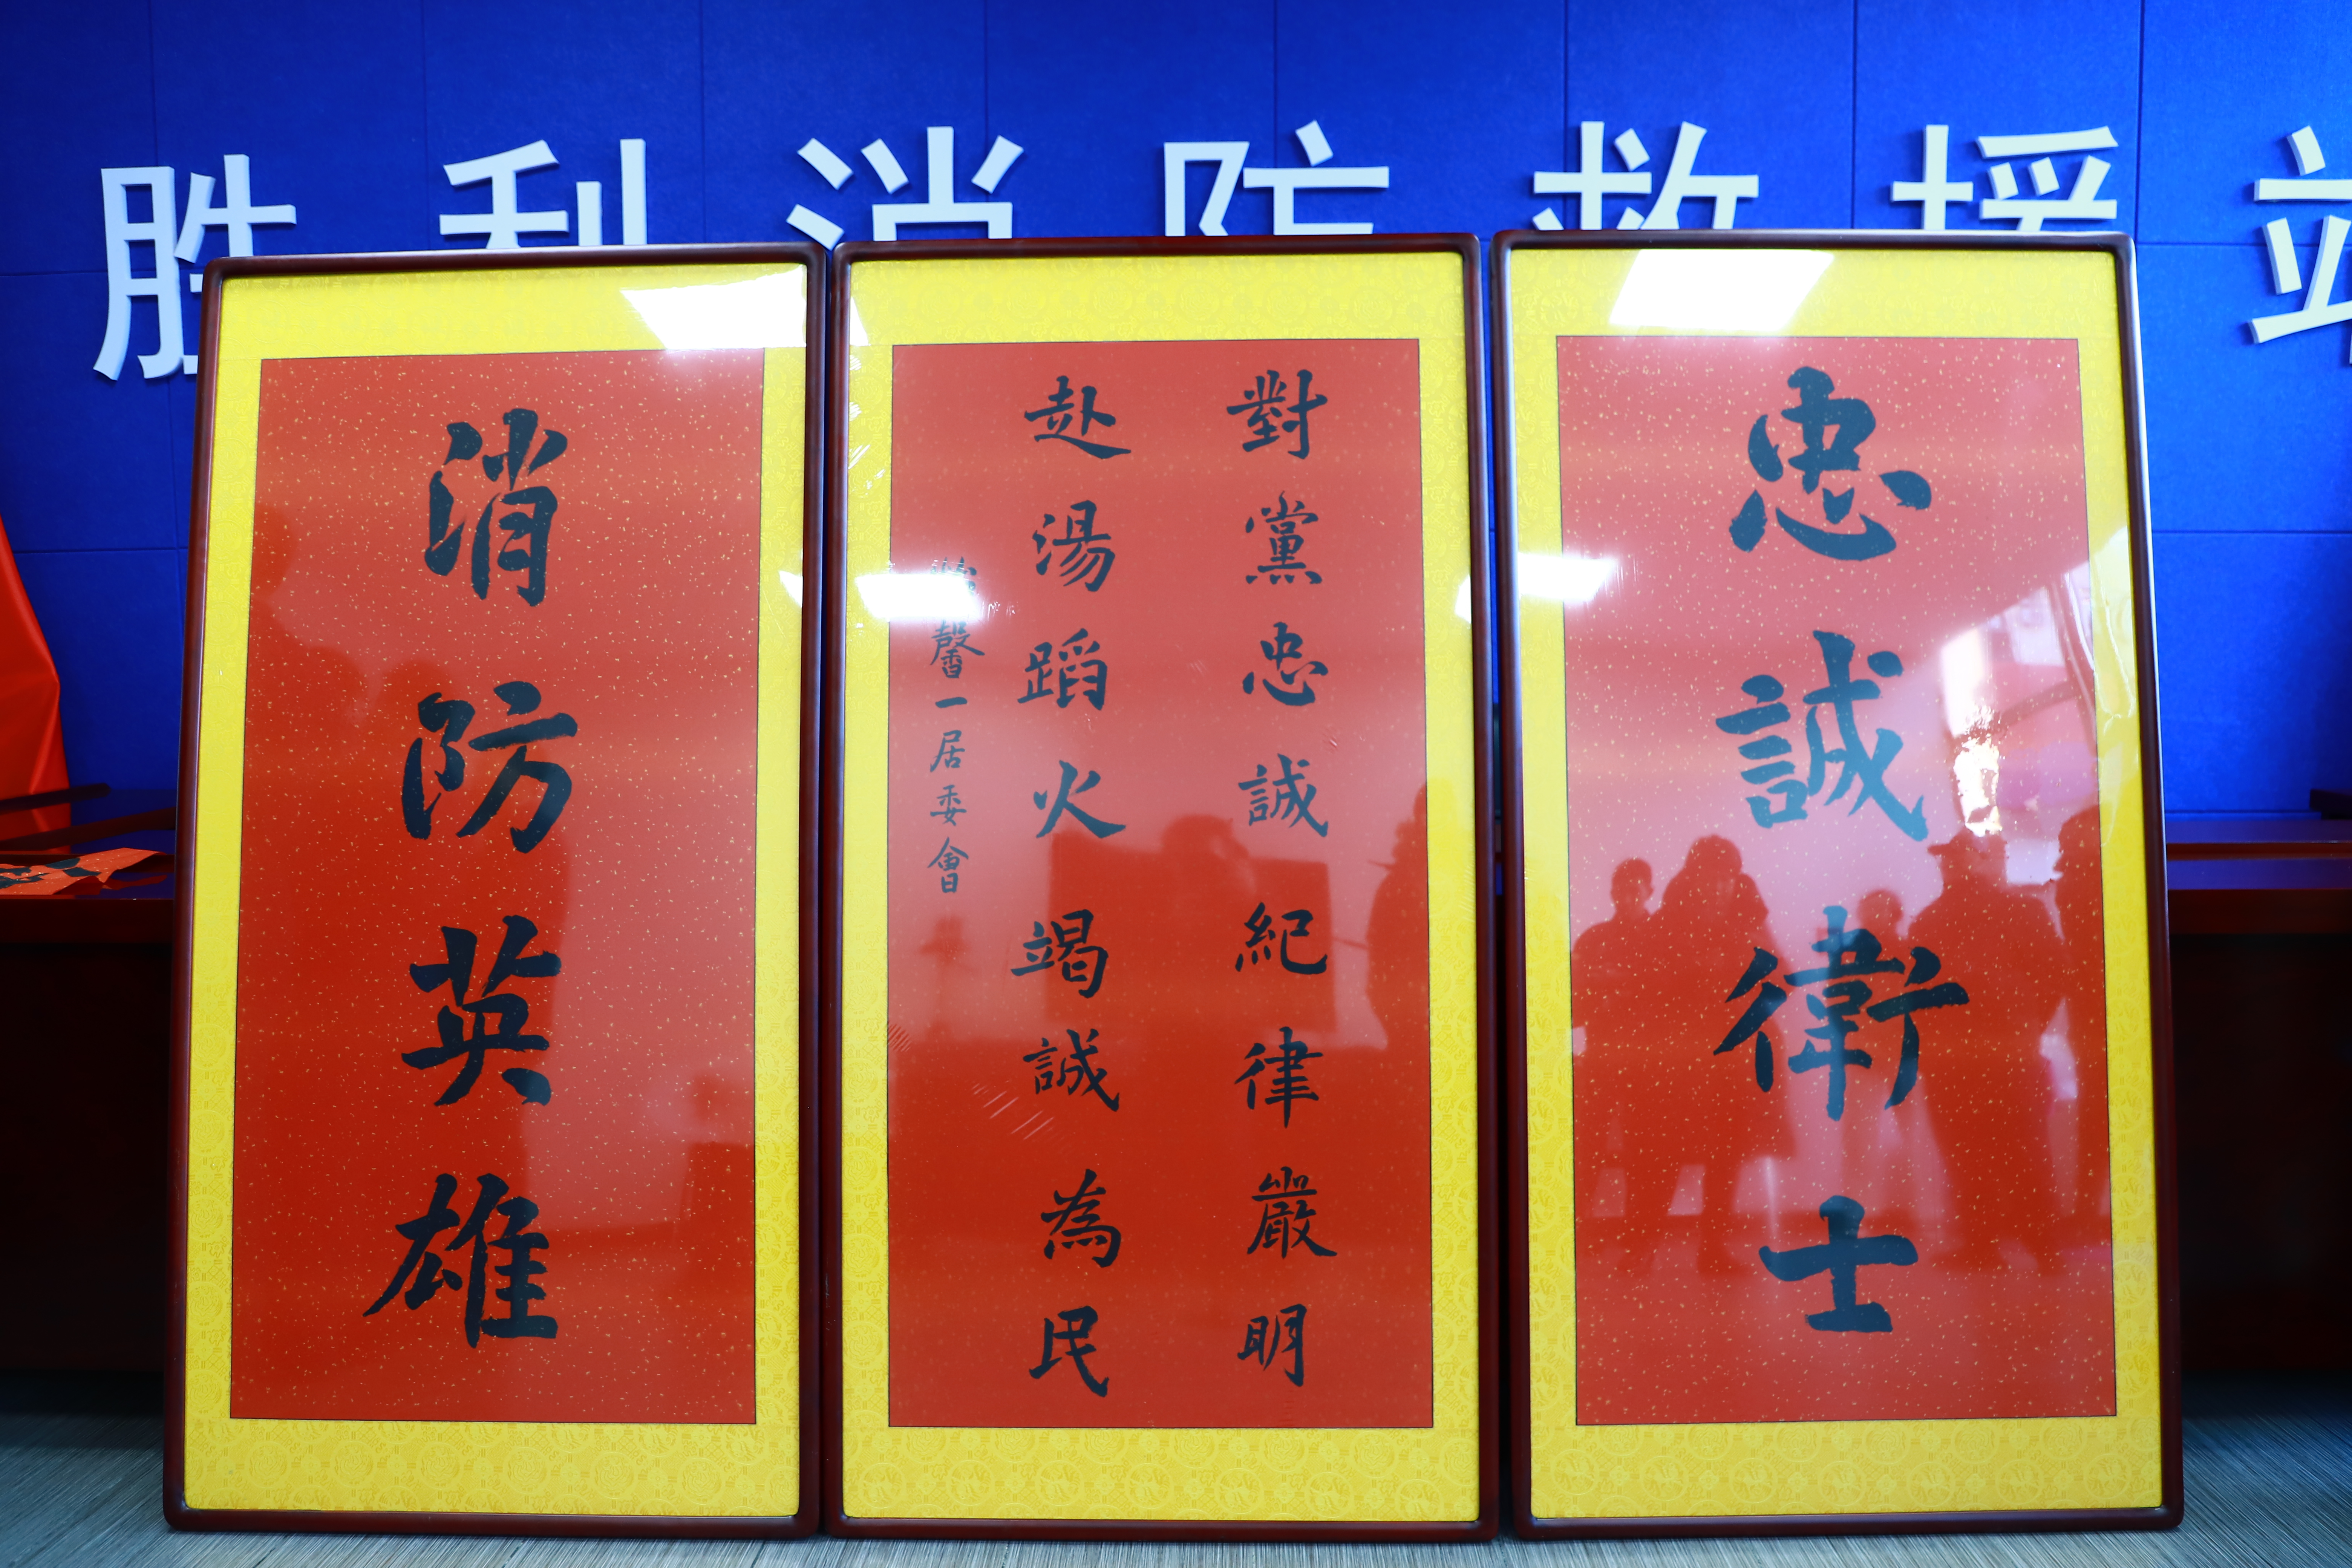 胜利消防救援站
忠誠衛士
對黨忠誠紀律嚴明
赴湯蹈火竭誠為民
馨一居委會
消防英雄